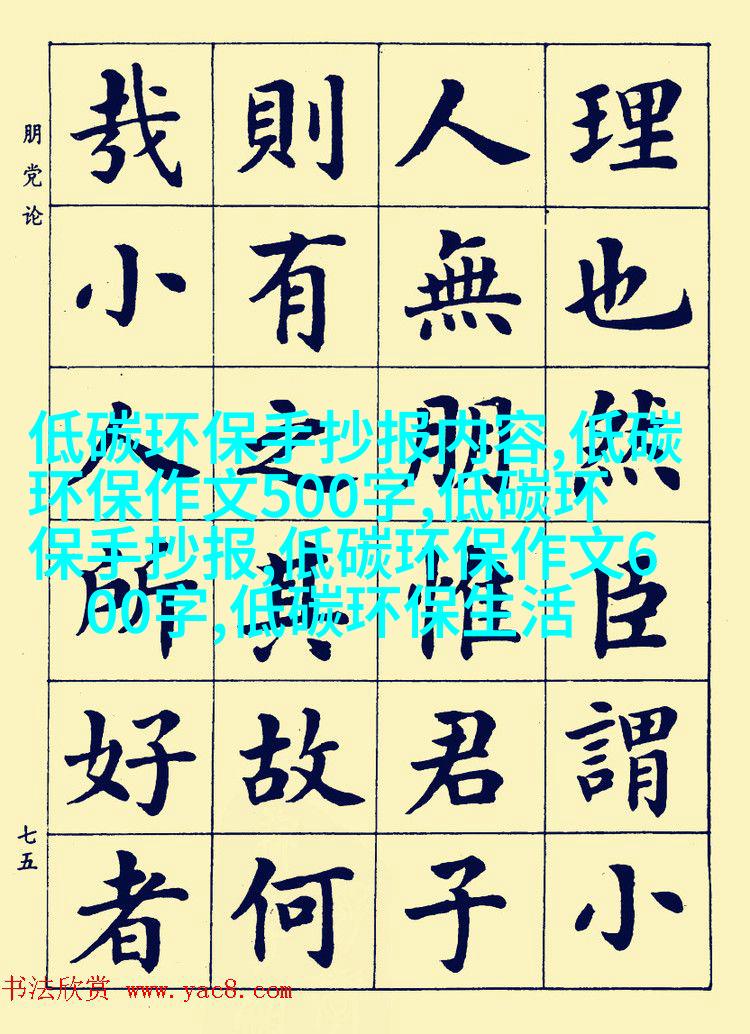 理也然臣謂小
人無朋惟君子
則有之其故何
哉小人所好者
朋党论
七五
低碳环保手抄报内容,低碳
环保作文500字,低碳环
保手抄报,低碳环保作文6
00字,低碳环保生活
书法欣赏 www.yac8.com